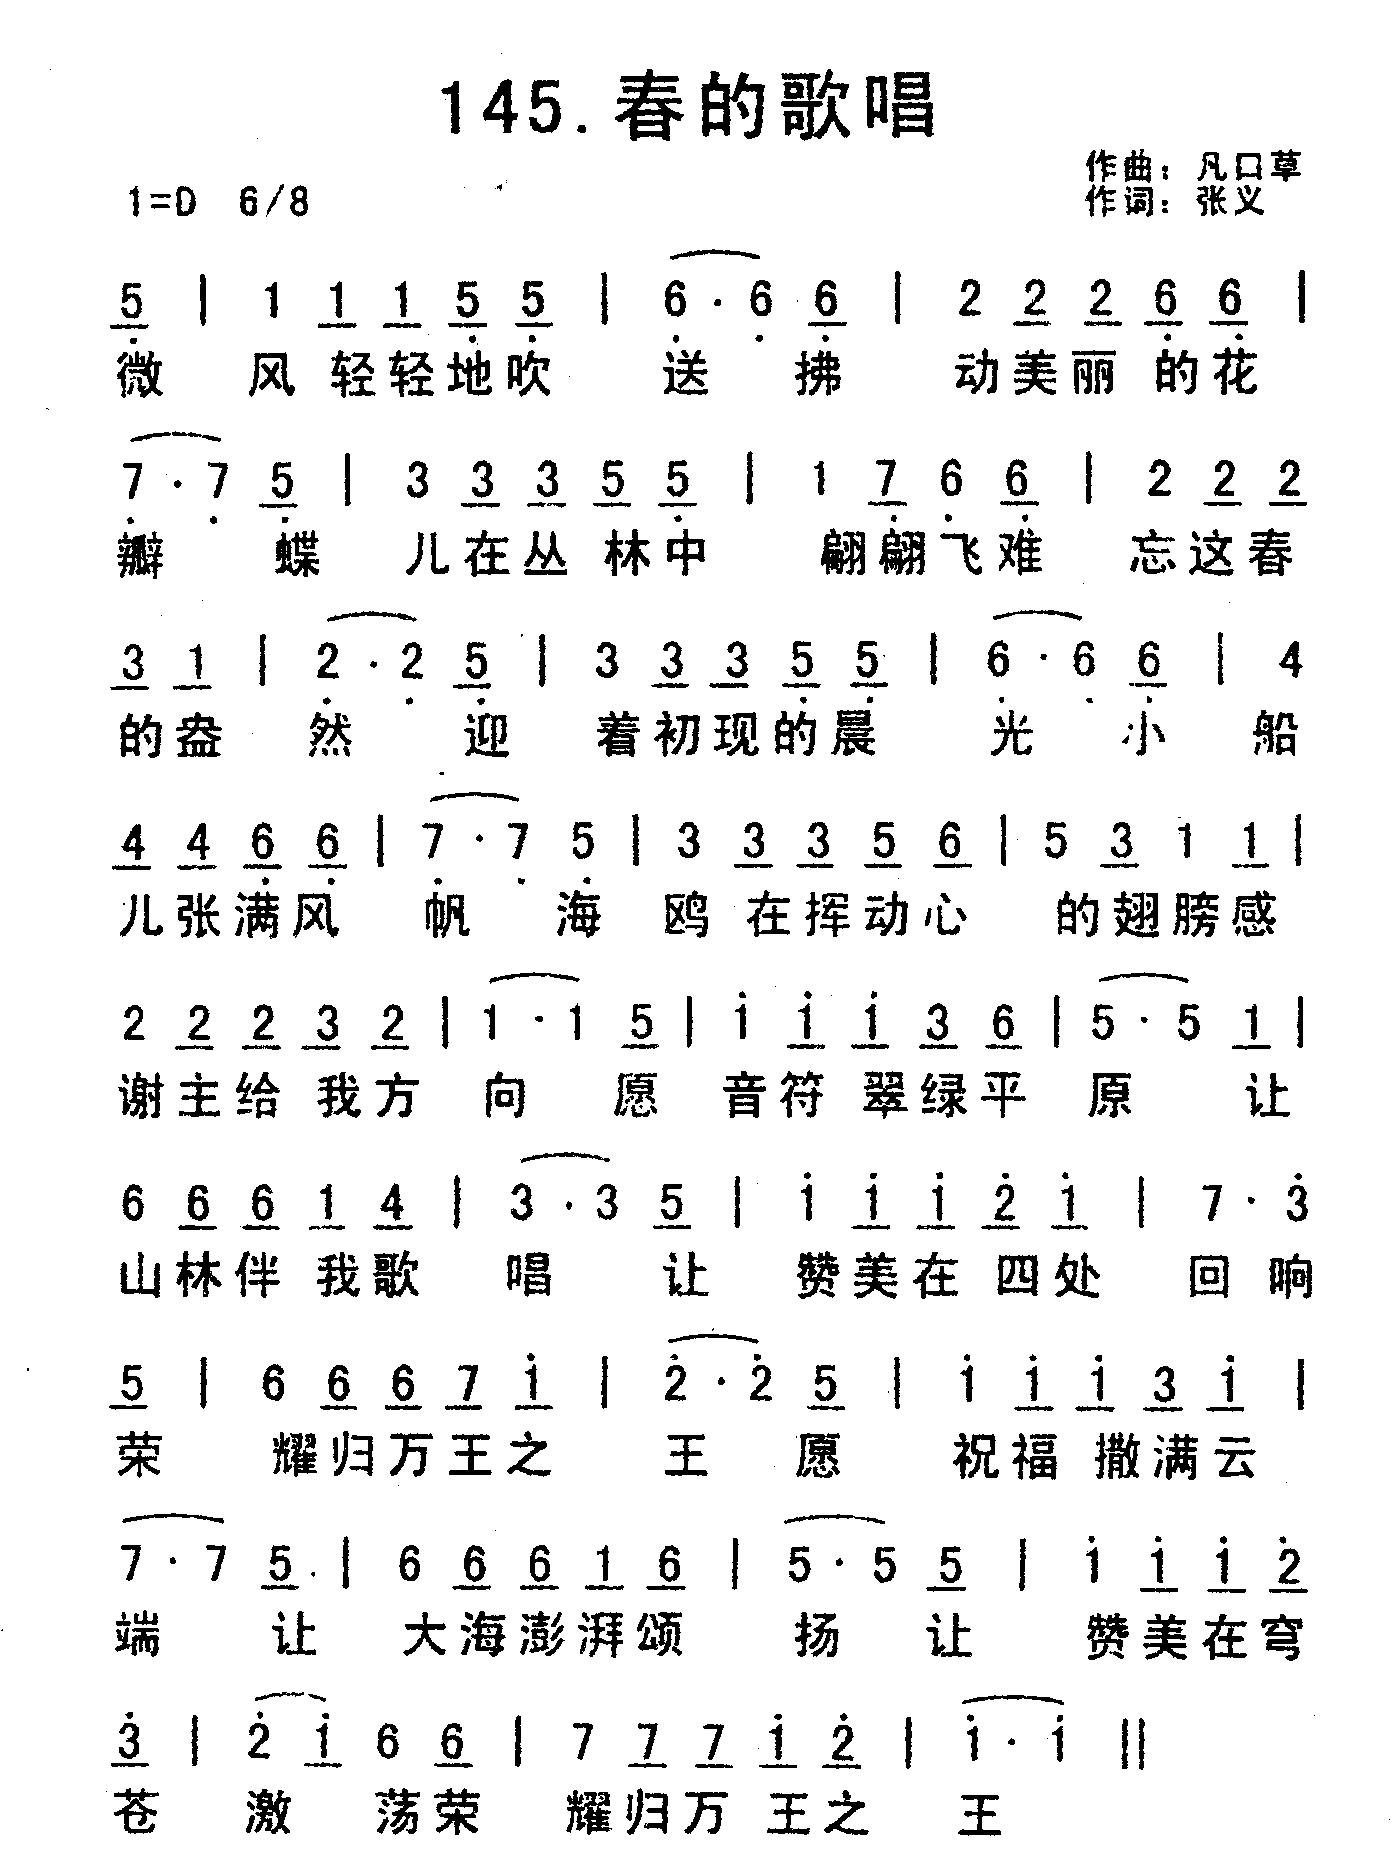 145.春的歌唱
作曲：凡口草
1=D 6/8 作词：张义
5 | 1 1 1 5 5 | 6 · 6 6 | 2 2 2 6 6 |
微 风 轻轻地吹 送 拂 动美丽 的花
7 · 7 5 | 3 3 3 5 5 | 1 7 6 6 | 2 2 2
瓣 蝶 儿在丛 林中 翩翩飞难 忘这春
3 1 | 2 · 2 5 | 3 3 3 5 5 | 6 · 6 6 | 4
的盎 然 迎 着初现的晨 光 小 船
4 4 6 6 | 7 · 7 5 | 3 3 3 5 6 | 5 3 1 1 |
儿张满风 帆 海 鸥 在挥动心 的翅膀感
2 2 2 3 2 | 1 · 1 5 | i i i 3 6 | 5 · 5 1 |
谢主给 我方 向 愿 音符 翠绿平 原 让
6 6 6 1 4 | 3 · 3 5 | i i i 2 i | 7 · 3
山林伴 我歌 唱 让 赞美在 四处 回 响
5 | 6 6 6 7 i | 2 · 2 5 | i i i 3 i |
荣 耀归万王之 王 愿 祝福 撒满云
7 · 7 5 | 6 6 6 1 6 | 5 · 5 5 | i i i 2
端 让 大海澎湃颂 扬 让 赞美在穹
3 | 2 i 6 6 | 7 7 7 i 2 | i · i ||
苍 激 荡荣 耀归万 王之 王